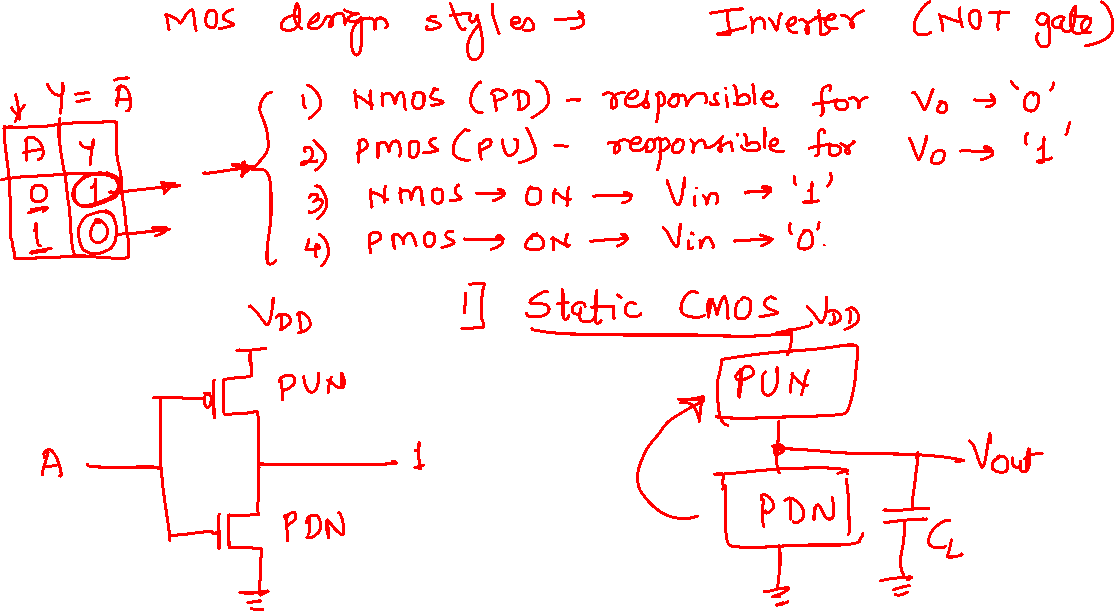 MOS design styles → Inverter (NOT gate)
Y = Ā
A Y
0 1
1 0
1) NMOS (PD) - responsible for Vo → '0'
2) PMOS (PU) - responsible for Vo → '1'
3) NMOS → ON → Vin → '1'
4) PMOS → ON → Vin → '0'.
1] Static CMOS
VDD
PUN
A
1
PDN
VDD
PUN
Vout
PDN
CL